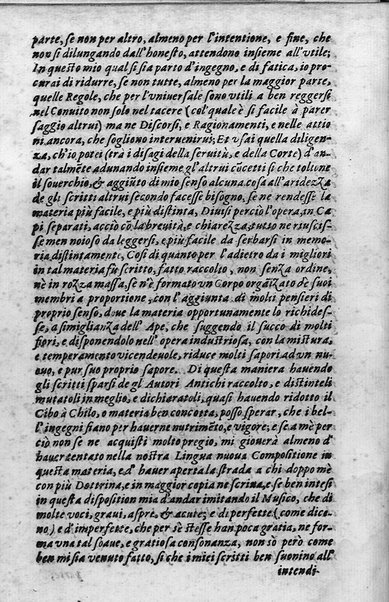 parte, se non per altro, almeno per l'intentione, e fine, che
non si dilungando dall'honesto, attendono insieme all'vtile;
In questo mio qual si sia parto d'ingegno, e di fatica, io pro-
curai di ridurre, se non tutte, almeno per la maggior parte,
quelle Regole, che per l'vniuersale sono vtili a ben reggersi
nel Conuito non solo nel tacere (col quale è sì facile à parer
saggio altrui) ma ne Discorsi, e Ragionamenti, e nelle attio
ni ancora, che sogliono interuenirui; Et vsai quella diligen-
za, ch'io potei (trà i disagi della seruitù, e della Corte) d'an
dar talmẽte adunando insieme gl'altrui cõcetti sì che toltone
il souerchio, & aggiũto di mio senso alcuna cosa all'aridezza
de gli scritti altrui secondo facesse bisogno, se ne rendesse la
materia più facile, e più distinta, Diuisi perciò l'opera, in Ca
pi separati, acciò cõ la breuità, e chiarezza, tutto ne riuscis-
se men noioso da leggersi, e più facile da serbarsi in memo-
ria distintamenti, Così di quanto per l'adietro da i migliori
in tal materia fù scritto, fatto raccolto, non senza ordine,
nè in rozza massa, se n'è formato vn Corpo orgãizato de suoi
membri a proportione, con l'aggiunta di molti pensieri di
proprio senso, doue la materia opportunamente lo richides-
se, a simiglianza dell'Ape, che suggendo il succo di molti
fiori, e disponendolo nell'opera industriosa, con la mistura,
e temperamento vicendeuole, riduce molti sapori ad vn nu-
ouo, e pur suo proprio sapore. Di questa maniera hauendo
gli scritti sparsi de gl'Autori Antichi raccolto, e distinteli
mutatoli in meglio, e dichiaratoli, quasi hauendo ridotto il
Cibo à Chilo, o materia ben concotta, posso sperar, che i bel-
l'ingegni siano per hauerne nutrimẽto, e vigore; e se a mè per
ciò non se ne acquisti molto pregio, mi giouerà almeno d'
hauer tentato nella nostra Lingua nuoua Compositione in
questa materia, e d'hauer aperta la strada a chi doppo mè
con più Dottrina, e in maggior copia ne scriua, e se ben intesi
in questa disposition mia d'andar imitando il Musico, che di
molte voci, graui, aspre, & acute; e di perfette (come dico-
no) e d'imperfette, che per sè stesse han poca gratia, ne for-
ma vna tal soaue, e gratiosa consonanza, non sò però come
ben mi sia venuto fatto, sì che i miei scritti ben suonino all'
intendi-